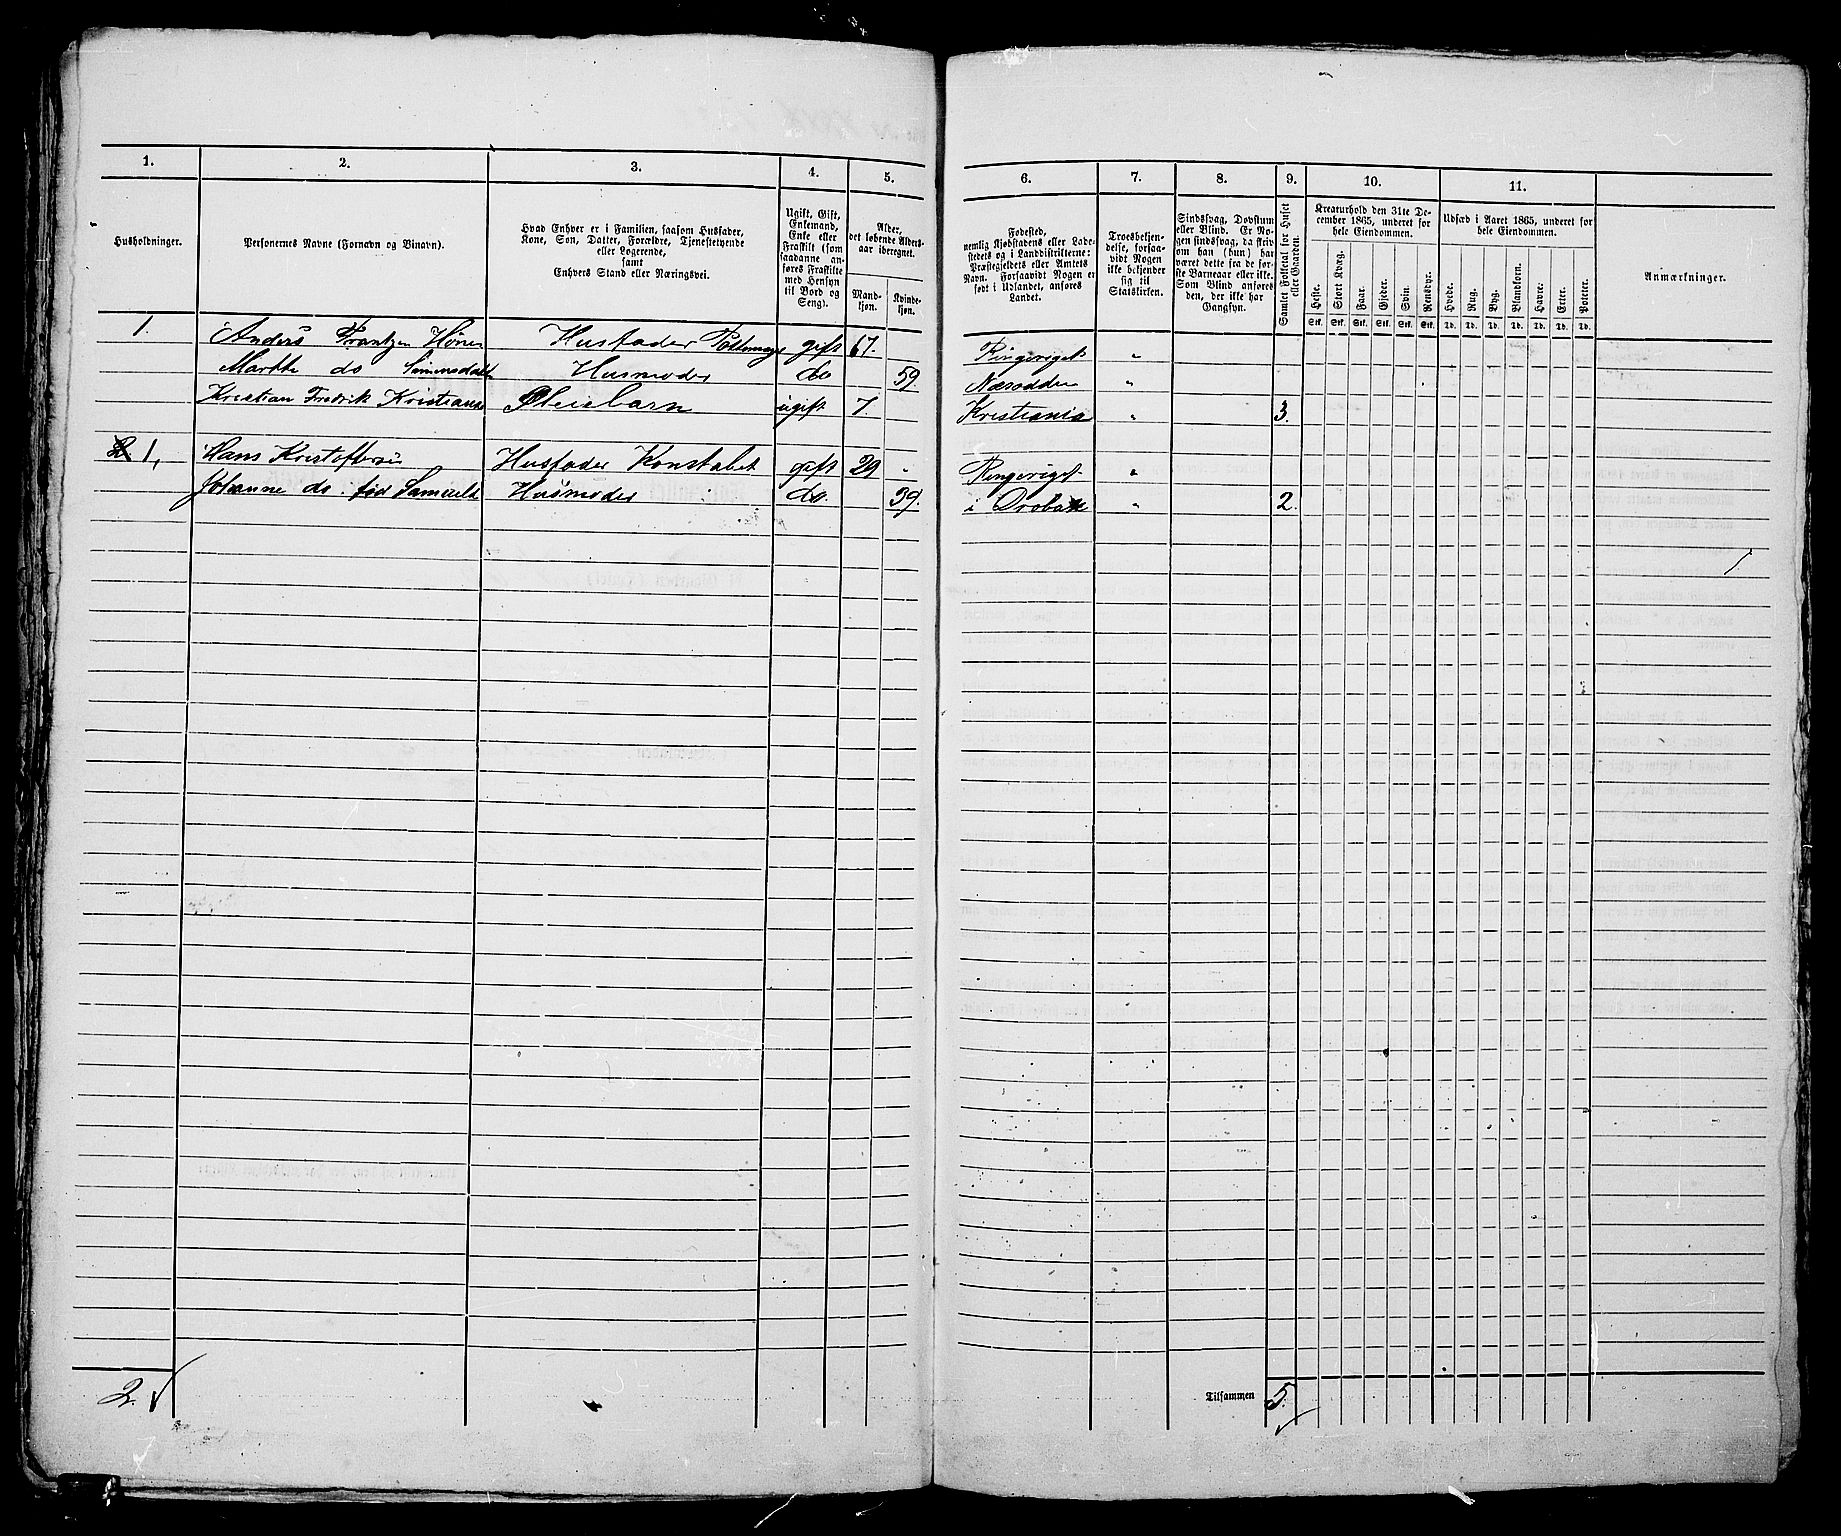 1. 2. 3. 4. 5. 6. 7. 8. 9. 10. 11.
Husholdninger.
Personernes Navne (Fornavn og Binavn).
Hvad Enhver er i Familien, saasom Husfader,
Kone, Søn, Datter, Forældre, Tjenestetyende
eller Logerende,
samt
Enhvers Stand eller Næringsvei.
Ugift, Gift,
Enkemand,
Enke eller
Fraskilt (som
saadanne an-
føres Fraskilte
med Hensyn
til Bord og
Seng).
Alder,
det løbende Alders-
aar iberegnet.
Mand-
kjøn.
Kvinde-
kjøn.
Fødested,
nemlig Kjøbstadens eller Lade-
stedets og i Landdistrikterne:
Præstegjeldets eller Amtets
Navn. Forsaavidt Nogen er
født i Udlandet, anføres
Landet.
Troesbekjen-
delse, forsaa-
vidt Nogen
ikke bekjender
sig til
Statskirken.
Sindssvag, Døvstum
eller Blind. Er No-
gen sindssvag, da skriv
om han (hun) har
været dette fra de før-
ste Barneaar eller ikke.
Som Blind anføres
den, der ikke har
Gangsyn.
Samlet Folketal for Huset
eller Gaarden.
Kreaturhold den 31te De-
cember 1865, underet for
hele Eiendommen.
Heste. Stort Kvæg. Faar. Gjeder. Svin. Rensdyr.
Stk. Stk. Stk. Stk. Stk. Stk.
Udsæd i Aaret 1865, underet for
hele Eiendommen.
Hvede. Rug. Byg. Blandkorn. Havre. Erter. Poteter.
Td. Td. Td. Td. Td. Td. Td.
Anmærkninger.
1. Anders Frantzen Husfader gift 67. Ringeriget "
Marthe do Husmoder do 59. Næsodden "
Kristian Fredrik Pleiebarn ugift 7 Kristiania " 3.
1, Hans Husfader Konstabel gift 29 Ringeriget "
Johanne do. fød Husmoder do. 39. i Drøbak " 2.
2.
Tilsammen 5.